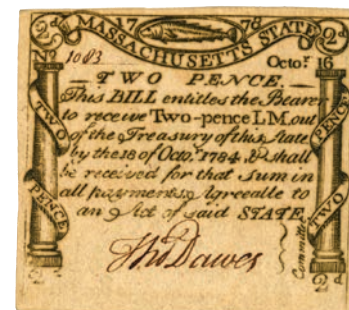 17 78
2d MASSACHUSETTS STATE 2d
No 1083 Octo.r 16
TWO PENCE.
This BILL entitles the Bearer
to receive Two-pence L.M. out
of the Treasury of this State
by the 18 of Octo.r 1784, & shall
be received for that Sum in
all payments, Agreeable to
an Act of said STATE
Tho Dawes
Committee
TWO
PENCE
PENCE
TWO
2d 2d